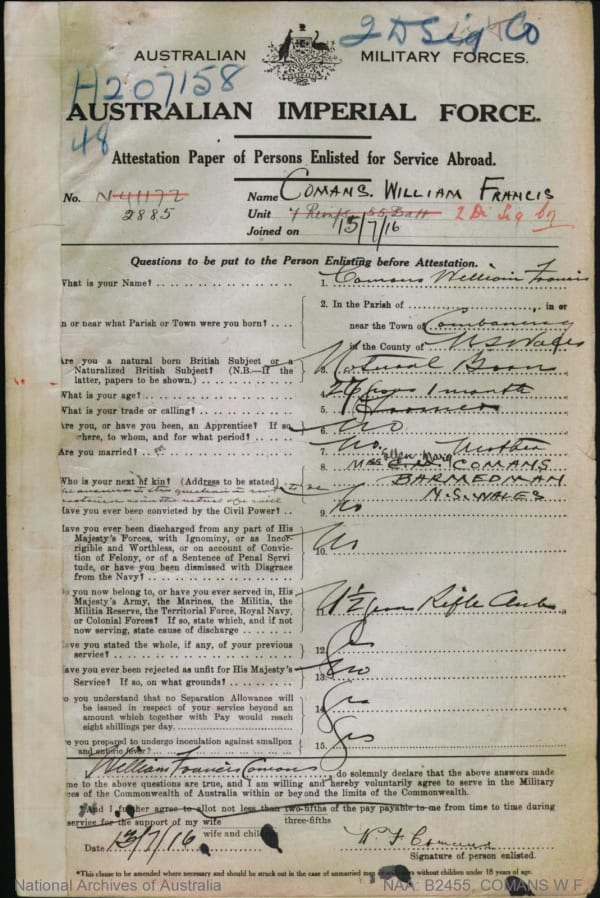 2 D Sig Co
AUSTRALIAN MILITARY FORCES.
H207158
AUSTRALIAN IMPERIAL FORCE.
48
Attestation Paper of Persons Enlisted for Service Abroad.
No. N41172 Name COMANS. WILLIAM FRANCIS
2885 Unit 7 Reinfs 55 Batt 2 D Sig Coy
Joined on 15/7/16
Questions to be put to the Person Enlisting before Attestation.
What is your Name? 1. Comans William Francis
2. In the Parish of , in or
n or near what Parish or Town were you born? near the Town of
in the County of N S Wales
Are you a natural born British Subject or a
Naturalized British Subject? (N.B.—If the 3. Natural Born
latter, papers to be shown.)
What is your age? 4. 1 month
What is your trade or calling? 5. Farmer
Are you, or have you been, an Apprentice? If so, 6. No
where, to whom, and for what period?
Are you married? 7. No. Mother
Ellen Maria
8. Mrs COMANS
Who is your next of kin? (Address to be stated) BARMEDMAN
N.S. WALES
Have you ever been convicted by the Civil Power? 9. No
Have you ever been discharged from any part of His
Majesty's Forces, with Ignominy, or as Incor-
rigible and Worthless, or on account of Convic- 10. No
tion of Felony, or of a Sentence of Penal Servi
tude, or have you been dismissed with Disgrace
from the Navy?
Do you now belong to, or have you ever served in, His
Majesty's Army, the Marines, the Militia, the
Militia Reserve, the Territorial Force, Royal Navy, 11. 1½ years Rifle Club
or Colonial Forces? If so, state which, and if not
now serving, state cause of discharge
Have you stated the whole, if any, of your previous 12. Yes
service?
Have you ever been rejected as unfit for His Majesty's 13. No
Service? If so, on what grounds?
Do you understand that no Separation Allowance will
be issued in respect of your service beyond an 14. Yes
amount which together with Pay would reach
eight shillings per day.
Are you prepared to undergo inoculation against smallpox 15. Yes
and enteric fever?
I, William Francis Comans, do solemnly declare that the above answers made
me to the above questions are true, and I am willing and hereby voluntarily agree to serve in the Military
ces of the Commonwealth of Australia within or beyond the limits of the Commonwealth.
*And I further agree to allot not less than two-fifths of the pay payable to me from time to time during
service for the support of my wife three-fifths
wife and children
Date 13/7/16 W F Comans
Signature of person enlisted.
*This clause to be amended where necessary and should be struck out in the case of unmarried men or widowers without children under 18 years of age.
National Archives of Australia NAA: B2455, COMANS W F